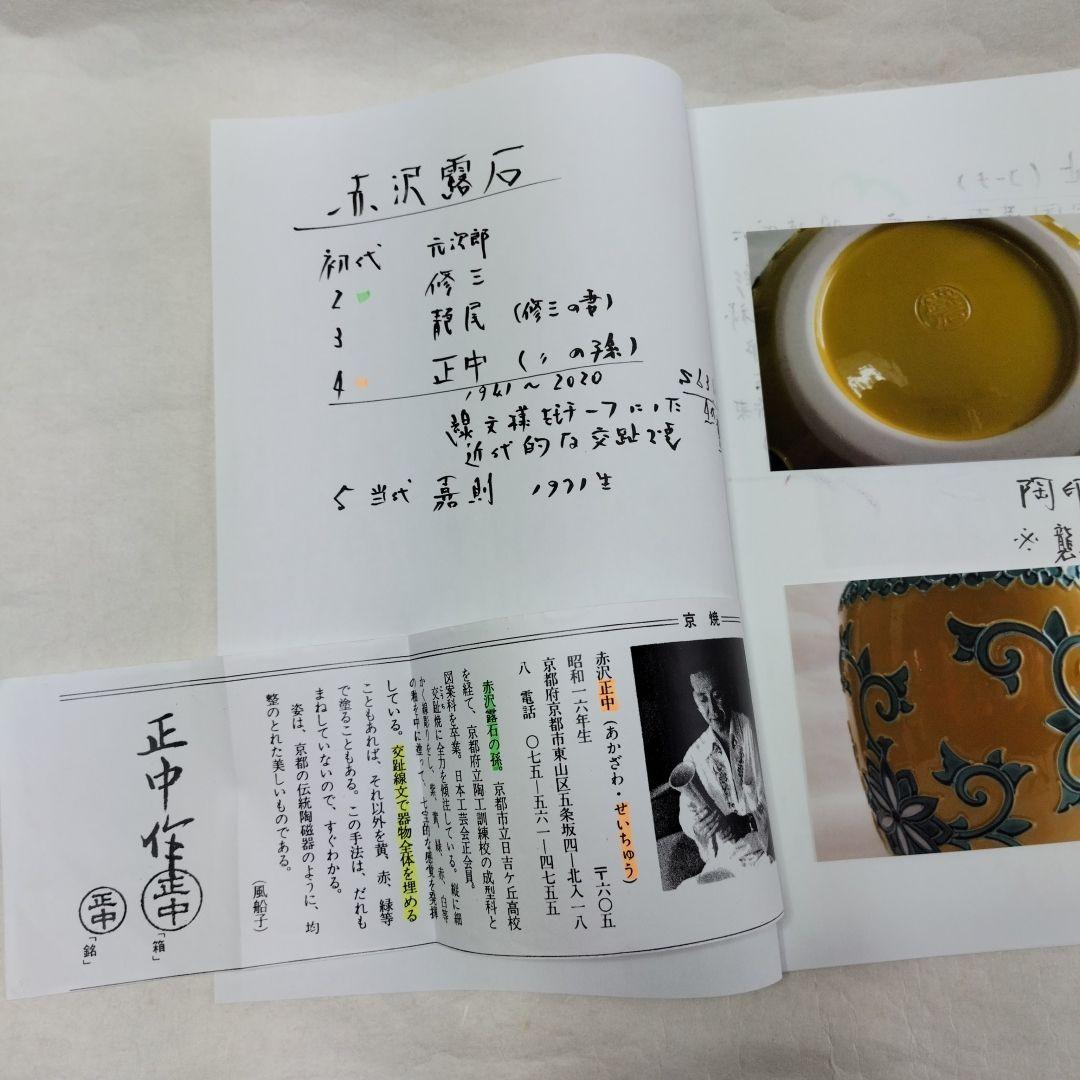 赤沢露石
初代 元次郎
2 修三
3 静尾 (修三の妻)
4 正中 (〃の子孫)
1941〜2020
線文様をモチーフにした
近代的な交趾で
5 当代 嘉則 1971生
京焼
赤沢正中(あかざわ・せいちゅう)
昭和一六年生 〒六〇五
京都府京都市東山区五条坂四―北入一八
八 電話 〇七五―五六一―四七五五
赤沢露石の孫。京都市立日吉ケ丘高校
を経て、京都府立陶工訓練校の成型科と
図案科を卒業。日本工芸会正会員。
交趾焼に全力を傾注している。縦に細
かく線彫りをし、紫、黄、緑、赤、白等
の釉を中に塗って、七宝的な感覚を発揮
している。交趾線文で器物全体を埋める
こともあれば、それ以外を黄、赤、緑等
で塗ることもある。この手法は、だれも
まねしていないので、すぐわかる。
姿は、京都の伝統陶磁器のように、均
整のとれた美しいものである。
(風船子)
正中作
正中
「箱」
正中
「銘」
(コーチ)
陶印
※襲